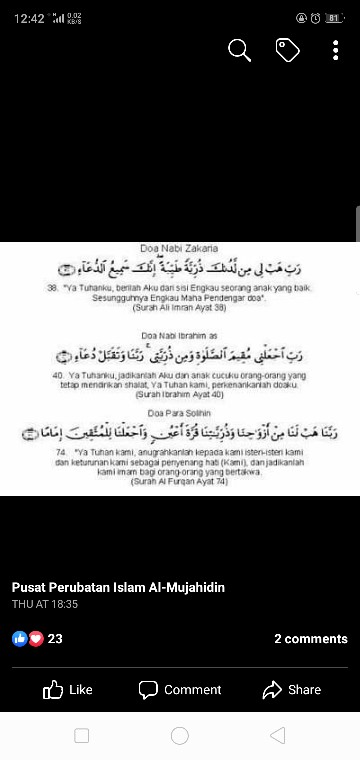 12:42
0.02
KB/S
81
Doa Nabi Zakaria
رَبِّ هَبْ لِي مِن لَّدُنكَ ذُرِّيَّةً طَيِّبَةً ۖ إِنَّكَ سَمِيعُ الدُّعَاءِ
38. "Ya Tuhanku, berilah Aku dari sisi Engkau seorang anak yang baik.
Sesungguhnya Engkau Maha Pendengar doa".
(Surah Ali Imran Ayat 38)
Doa Nabi Ibrahim as
رَبِّ اجْعَلْنِي مُقِيمَ الصَّلَوٰةِ وَمِن ذُرِّيَّتِي ۚ رَبَّنَا وَتَقَبَّلْ دُعَاءِ
40. Ya Tuhanku, jadikanlah Aku dan anak cucuku orang-orang yang
tetap mendirikan shalat, Ya Tuhan kami, perkenankanlah doaku.
(Surah Ibrahim Ayat 40)
Doa Para Solihin
رَبَّنَا هَبْ لَنَا مِنْ أَزْوَاجِنَا وَذُرِّيَّاتِنَا قُرَّةَ أَعْيُنٍ وَاجْعَلْنَا لِلْمُتَّقِينَ إِمَامًا
74. "Ya Tuhan kami, anugrahkanlah kepada kami isteri-isteri kami
dan keturunan kami sebagai penyenang hati (Kami), dan jadikanlah
kami imam bagi orang-orang yang bertakwa.
(Surah Al Furqan Ayat 74)
Pusat Perubatan Islam Al-Mujahidin
THU AT 18:35
23
2 comments
Like
Comment
Share